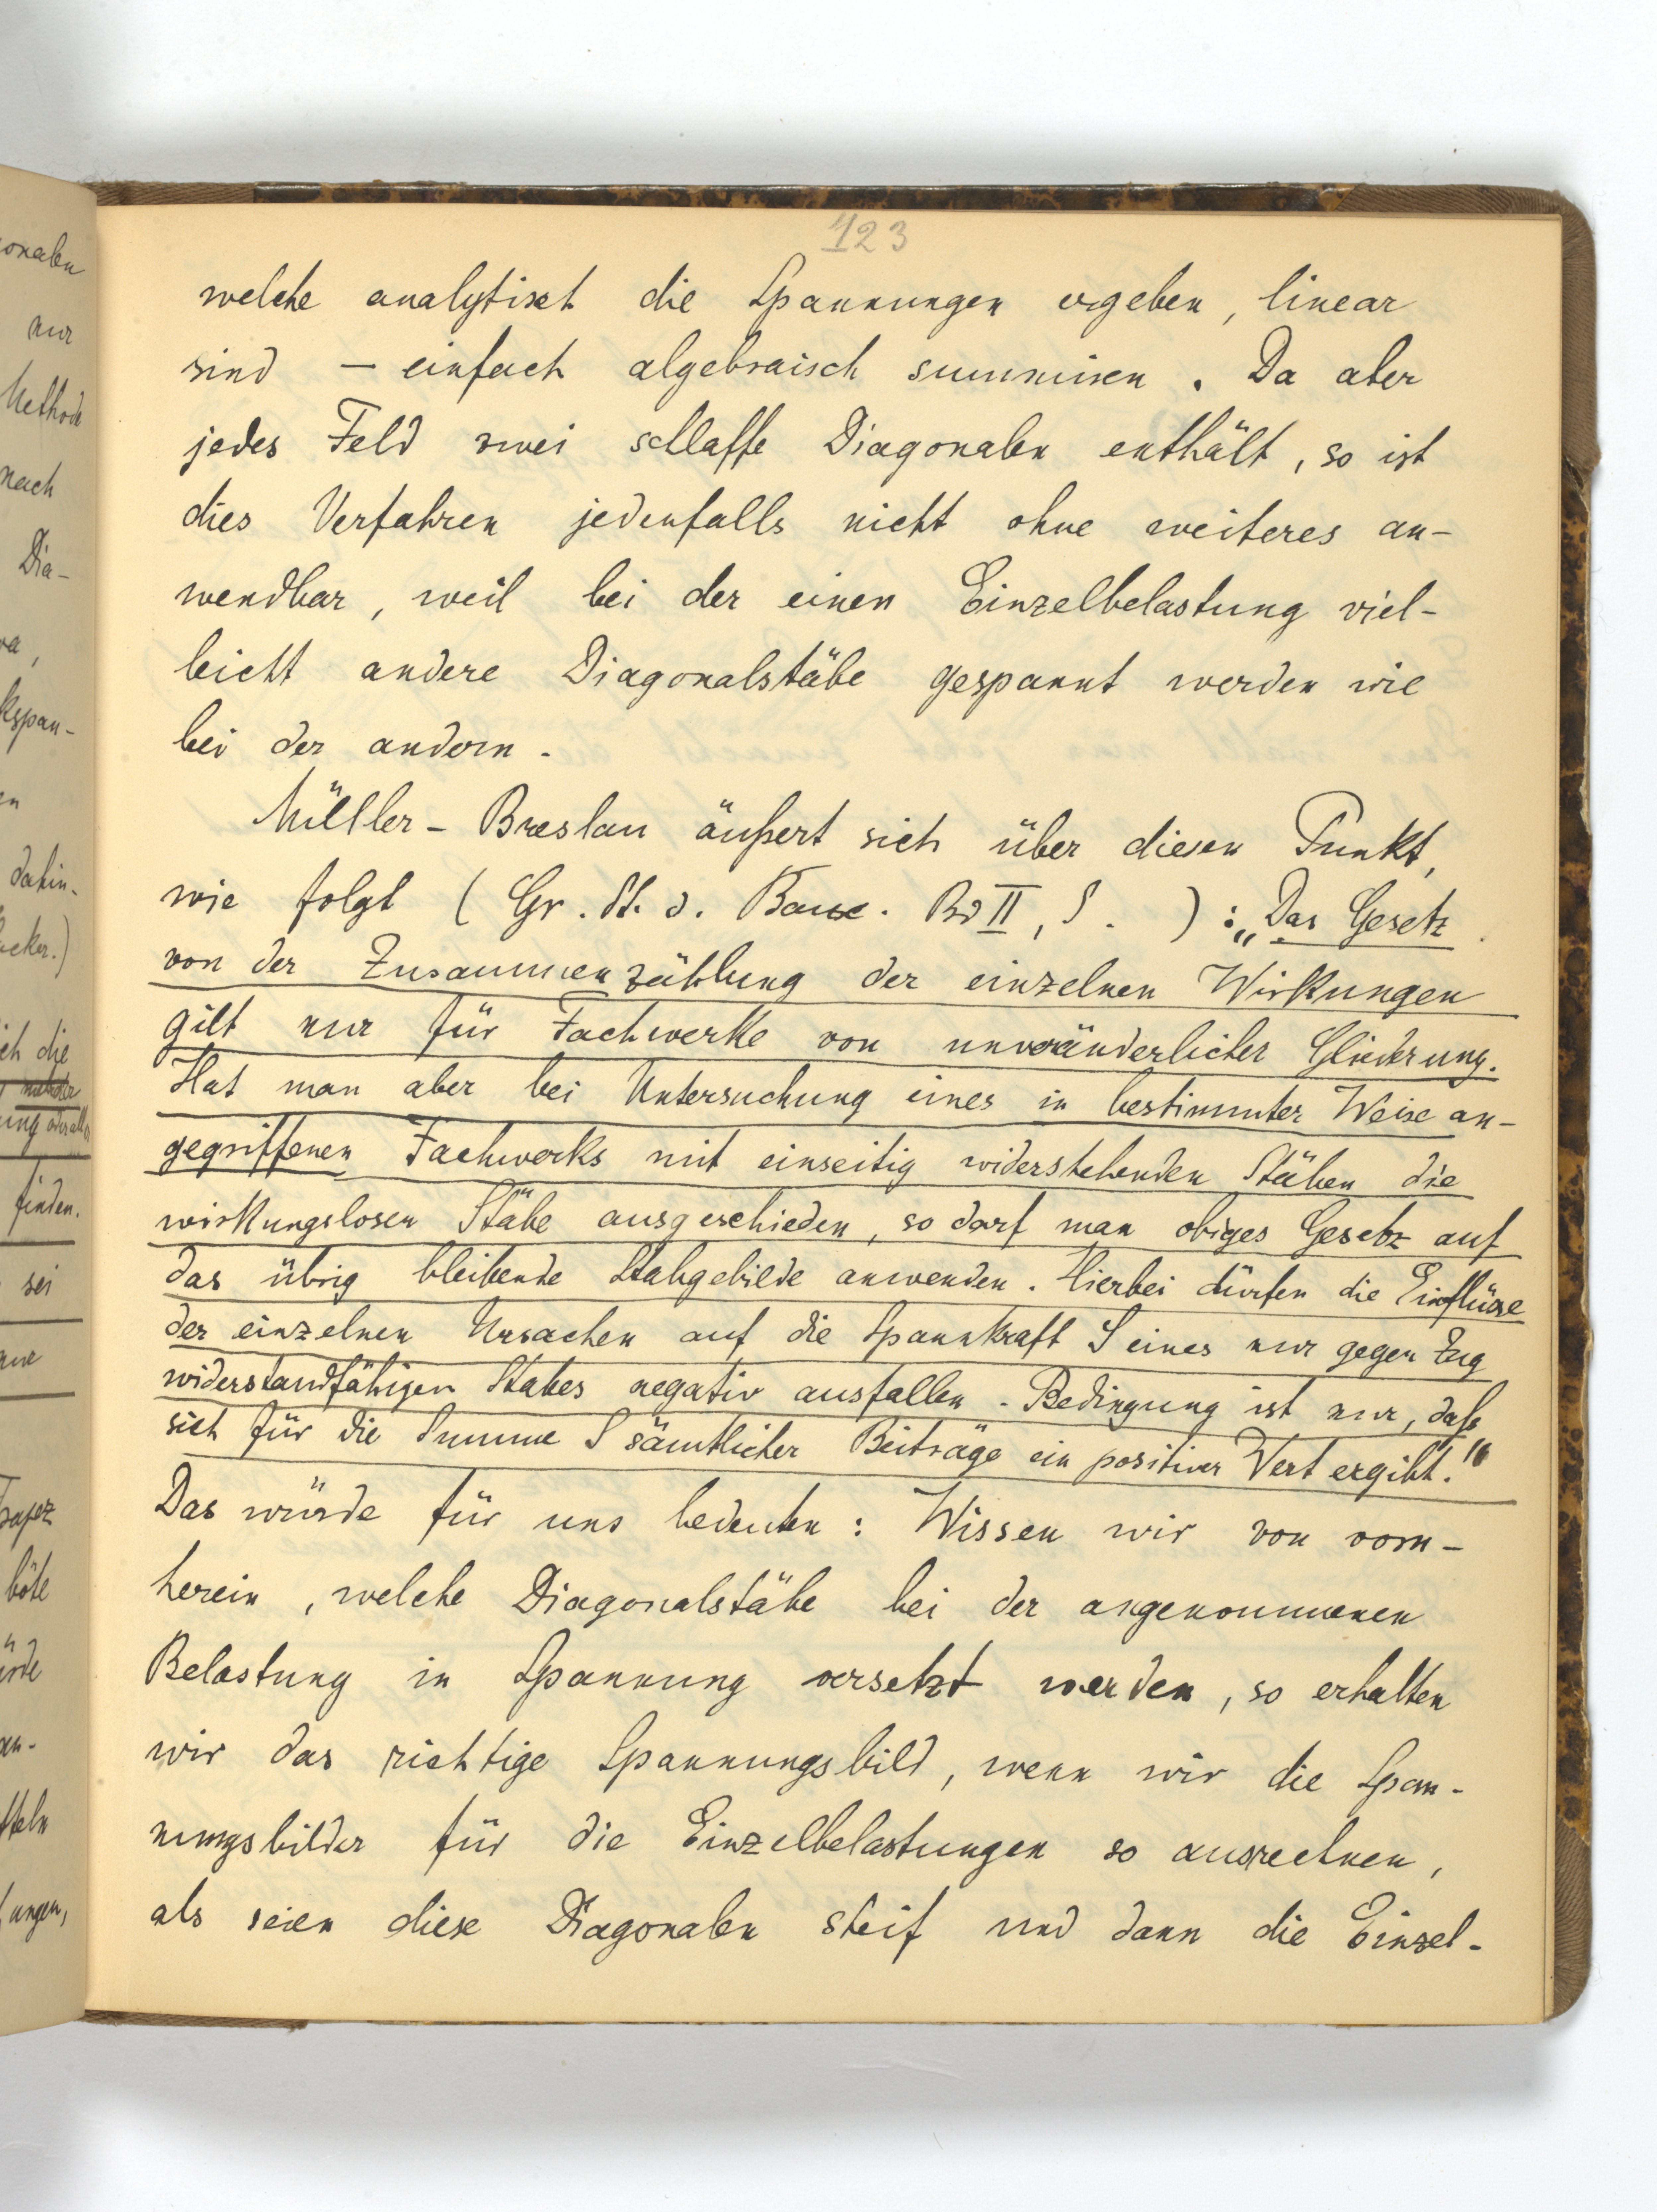 123
welche analytisch die Spannungen ergeben, linear
sind – einfach algebraisch summieren. Da aber
jedes Feld zwei schlaffe Diagonalen enthält, so ist
dies Verfahren jedenfalls nicht ohne weiteres an-
wendbar, weil bei der einen Einzelbelastung viel-
leicht andere Diagonalstäbe gespannt werden wie
bei der andern.
Müller-Breslau äußert sich über diesen Punkt,
wie folgt (Gr. St. d. Bauk. Bd II, S. ) : „Das Gesetz
von der Zusammenzählung der einzelnen Wirkungen
gilt nur für Fachwerke von unveränderlicher Gliederung.
Hat man aber bei Untersuchung eines in bestimmter Weise an-
gegriffenen Fachwerks mit einseitig widerstehenden Stäben die
wirkungslosen Stäbe ausgeschieden, so darf man obiges Gesetz auf
das übrig bleibende Stabgebilde anwenden. Hierbei dürfen die Einflüsse
der einzelnen Ursachen auf die Spannkraft S eines nur gegen Zug
widerstandfähigen Stabes negativ ausfallen. Bedingung ist nur, daß
sich für die Summe S sämtlicher Beiträge ein positiver Wert ergibt."
Das würde für uns bedeuten: Wissen wir von vorn-
herein, welche Diagonalstäbe bei der angenommenen
Belastung in Spannung versetzt werden, so erhalten
wir das richtige Spannungsbild, wenn wir die Span-
nungsbilder für die Einzelbelastungen so ausrechnen,
als seien diese Diagonalen steif und dann die Einzel-
onalen
nur
Methode
nach
Dia-
kspan-
dahin-
ich die
finden.
sei
böte
ungen,